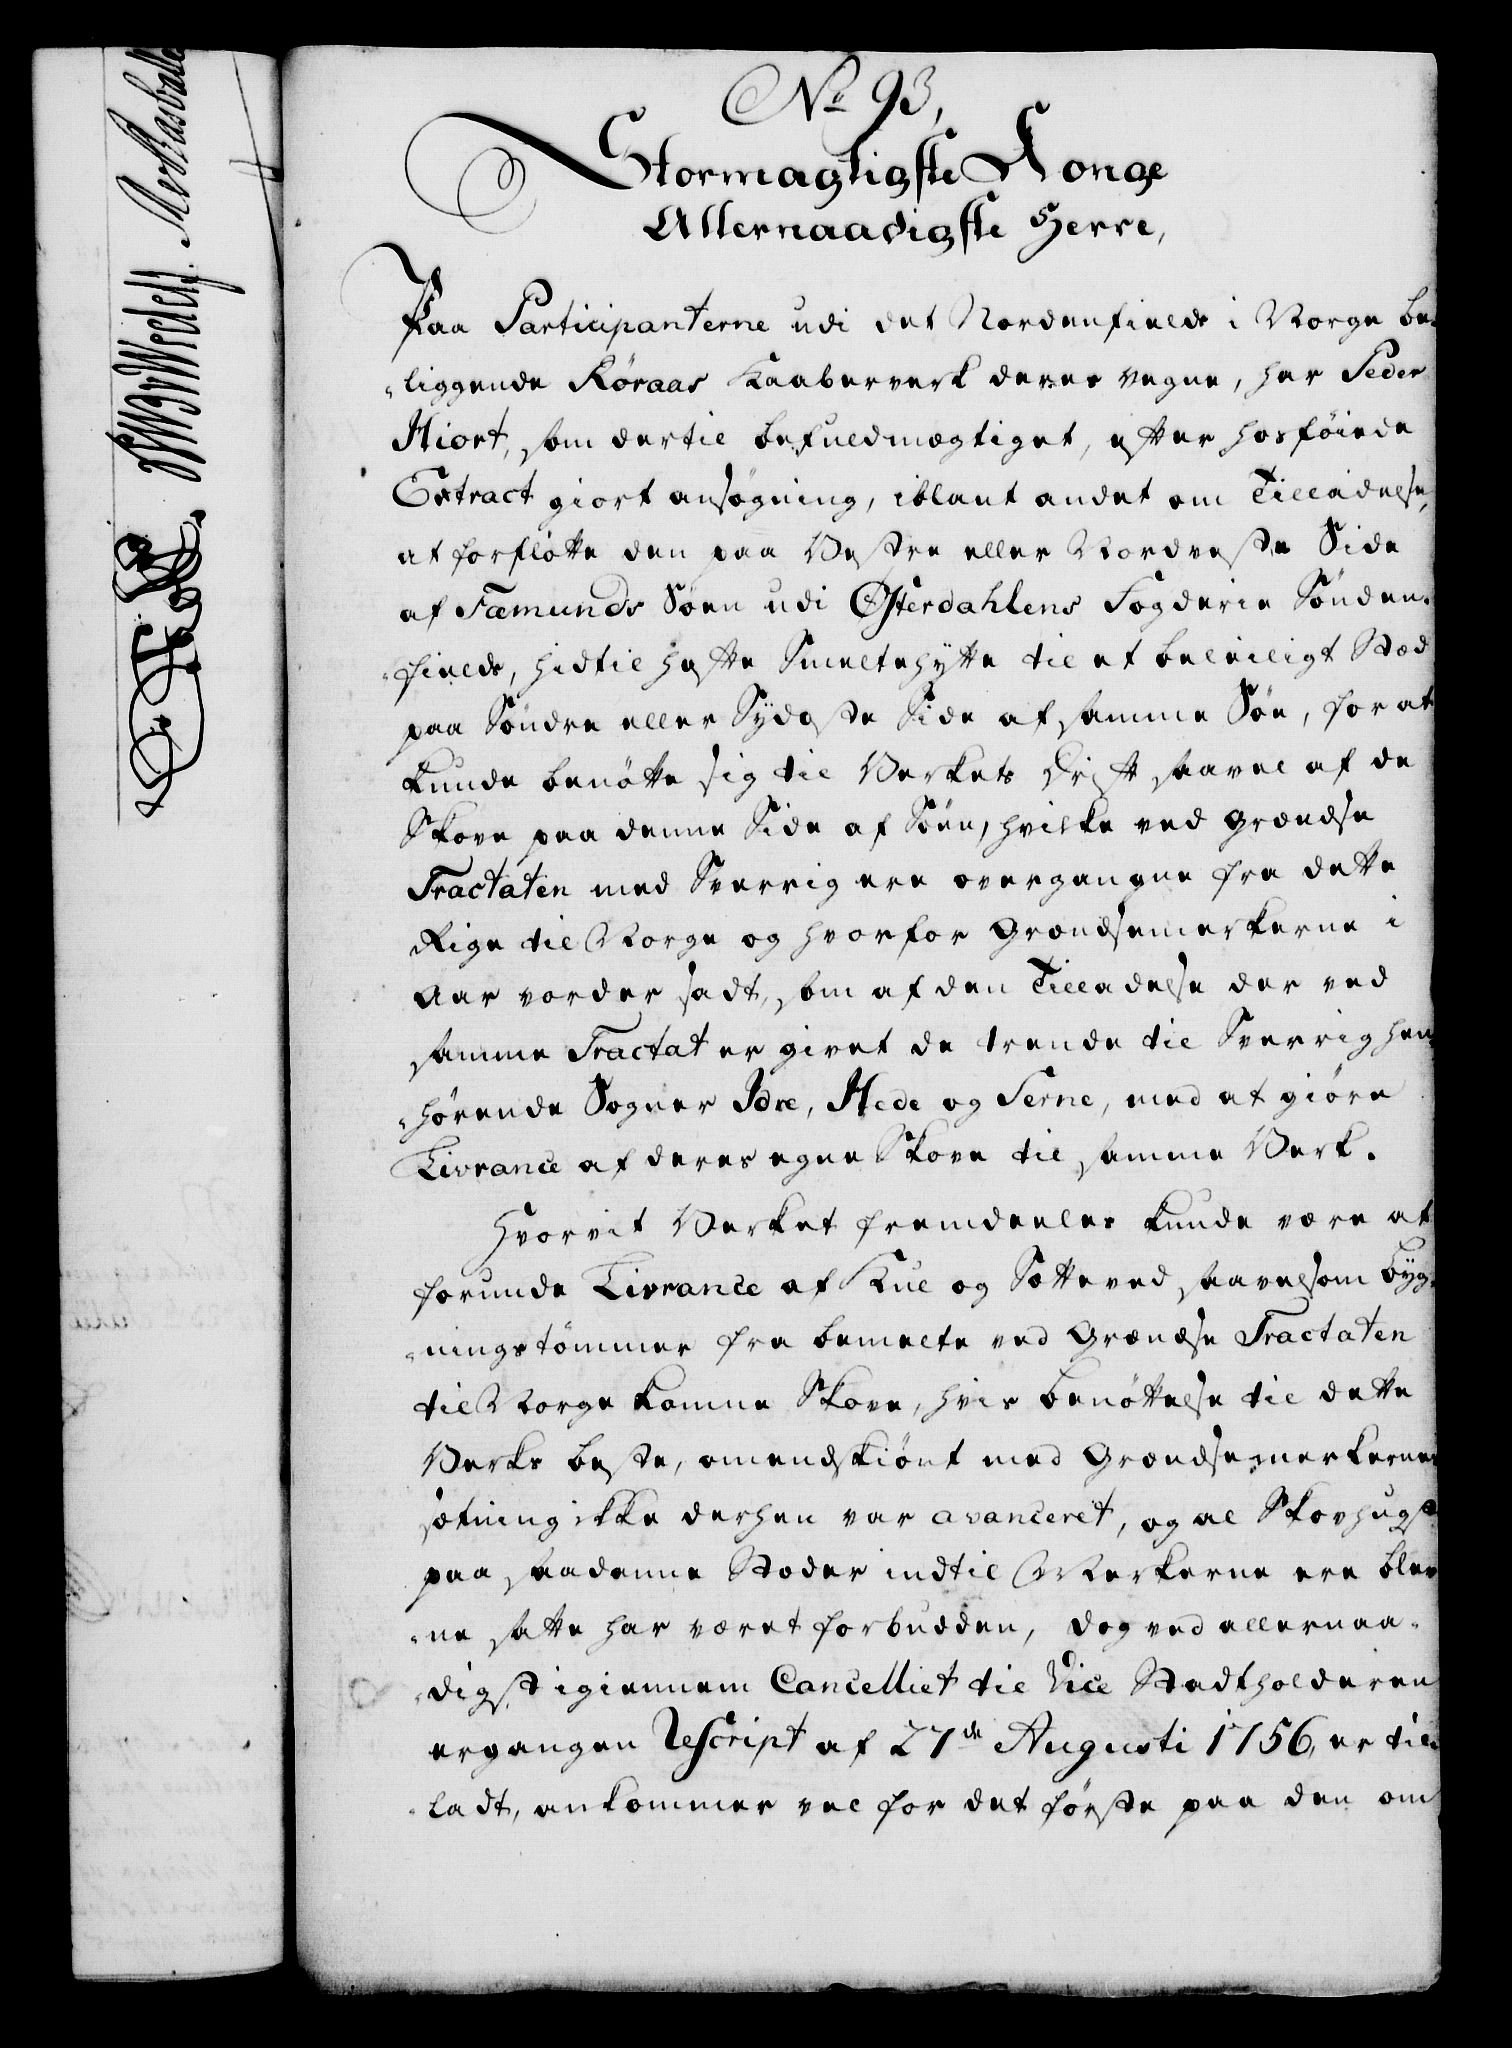 No 93,
Stormægtigste Konge
Allernaadigste Herre,
Paa Participanterne udi det Nordenfields i Norge be-
liggende Røraas Kaaberverk deres vegne, har Peder
Hiort, som dertil befuldmægtiget, efter hosføiede
Extract giort ansøgning, iblant andet om Tilladelse,
at forflötte den paa Vestre eller Nordveste Side
af Fæmunds Søen udi Østerdahlens Fogderie Sønden-
fields, hidtil hafte Smeltehytte til et beleiligt Stæd
paa Søndre eller Sydoste Side af samme Søe, for at
kunde benøtte sig til Verkets Drift saavel af de
Skove paa denne Side af Søen, hvilke ved Grændse
Tractaten med Sverrig ere overgangne fra dette
Rige til Norge og hvorfor Grændsemerkerne i
Aar vorder sadt, som af den Tilladelse der ved
samme Tractat er givet de trende til Sverrig hen-
hørende Sogner Idre, Hede og Serne, med at giøre
Livrance af deres egne Skove til samme Verk.
Hvorvit Verket fremdeeles kunde være at
forunde Livrance af Kul og Sætteved saavelsom Byg-
ningstømmer fra bemelte ved Grændse Tractaten
til Norge komne Skove, hvis benøttelse til dette
Verks beste, omendskiønt med Grændsemerkernes
sætning ikke derhen var avanceret, og al Skovhugst
paa saadanne Stæder indtil Merkerne ere blev-
ne satte har været forbudden, dog ved allernaa-
digst igiennem Cancelliet til Vice Stadtholderen
ergangen Rescript af 27de Augusti 1756, er til-
ladt, ankommer vel for det første paa den om